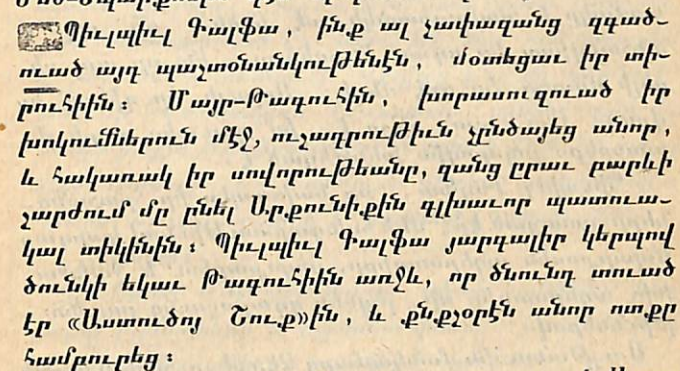 Պիւլպիւլ Գալֆա, ինք ալ չափազանց զգած-
ուած այդ պաշտօնանկութենէն, մօտեցաւ իր տի-
րուհիին։ Մայր-Թագուհին, խորասուզուած իր
խոկումներուն մէջ, ուշադրութիւն չընծայեց անոր,
և հակառակ իր սովորութեանը, զանց ըրաւ բարևի
շարժում մը ընել Արքունիքին գլխաւոր պատուա-
կալ տիկինին։ Պիւլպիւլ Գալֆա յարգալիր կերպով
ծունկի եկաւ Թագուհիին առջև, որ ծնունդ տուած
էր «Աստուծոյ Շուք»ին, և քնքշօրէն անոր ոտքը
համբուրեց։